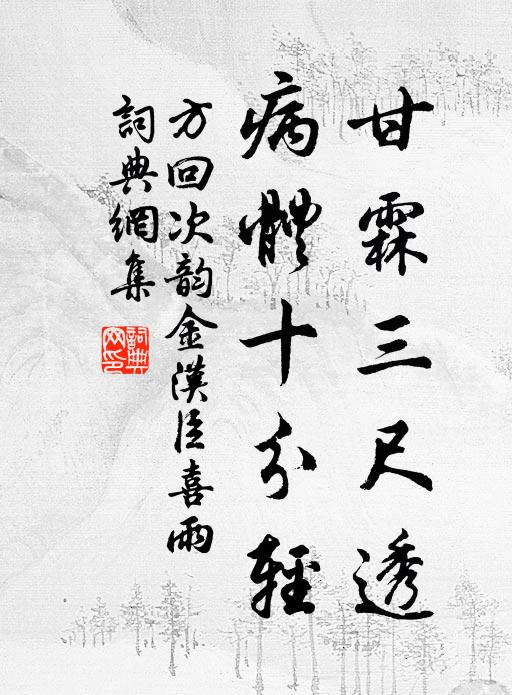 甘霖三尺透
病體十分輕
方回次韵金漢臣喜雨
詞典網集
詞典
网印